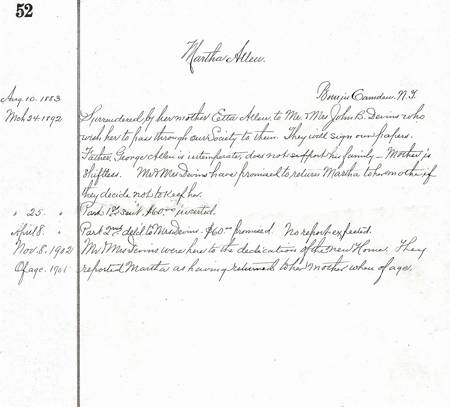 52
Martha Allen.
Aug. 10. 1883 Born in Camden. N.J.
Mch 24. 1892 Surrendered by her mother Etta Allen, to Mr. & Mrs John B. Devins who
wish her to pass through our Society to them. They will sign our papers.
Father, George Allen is intemperate, does not support his family – Mother is
shiftless. Mr & Mrs Devins have promised to return Martha to her mother if
they decide not to keep her.
" 25. " Part 1st sent. $60.00 inserted.
April 8. " Part 2nd sent to Mrs Devins. $60.00 promised. No report expected.
Nov. 8. 1902 Mr. & Mrs Devins were here to the dedication of the new Home. They
Of age. 1901 reported Martha as having returned to her mother when of age.